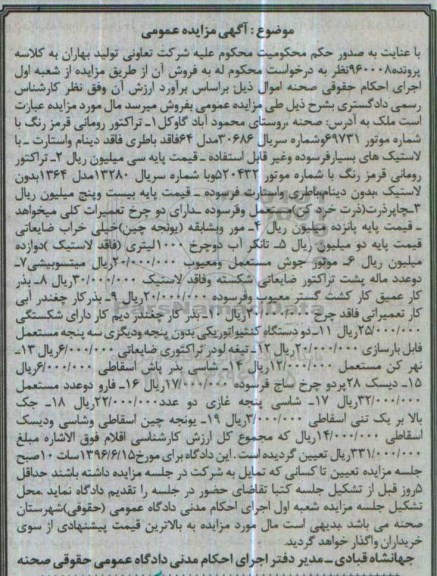 موضوع : آگهی مزایده عمومی
با عنایت به صدور حکم محکومیت محکوم علیه شرکت تعاونی تولید بهاران به کلاسه
پرونده۹۶۰۰۰۸نظر به درخواست محکوم له به فروش آن از طریق مزایده از شعبه اول
اجرای احکام حقوقی صحنه اموال ذیل: براساس برآورد ارزش آن وفق نظر کارشناس
رسمی دادگستری بشرح ذیل طی مزایده عمومی بفروش میرسد مال مورد مزایده عبارت
است ملک به آدرس: صحنه ،روستای محمود آباد گاوکل۱ـ تراکتور رومانی قرمز رنگ با
شماره موتور ۶۹۷۳۱وشماره سریال ۳۰۶۸۶مدل ۶۴فاقد باطری فاقد دینام واستارت ـ با
لاستیک های بسیارفرسوده وغیر قابل استفاده ـ قیمت پایه سی میلیون ریال ۲ـ تراکتور
رومانی قرمز رنگ با شماره موتور ۵۲۰۴۳۲وبا شماره سریال ۱۳۲۸۰مدل ۱۳۶۴بدون
لاستیک ،بدون دینام،باطری واستارت فرسوده ـ قیمت پایه بیست وپنج میلیون ریال
۳ـچاپرذرت(ذرت خرد کن)مستعمل وفرسوده ـدارای دو چرخ تعمیرات کلی میخواهد
ـ قیمت پایه پانزده میلیون ریال ۴ـ مور وبشابقه (یونجه چین)خیلی خراب ضایعاتی
قیمت پایه دو میلیون ریال ۵ـ تانکر آب دوچرخ ۱۰۰۰لیتری (فاقد لاستیک )دوازده
میلیون ریال ۶ـ موتور جوش مستعمل ومعیوب ۲۰/۰۰۰/۰۰۰ریال میتسوبیشی۷ـ
دوعدد ماله پشت تراکتور ضایعاتی شکسته وفاقد لاستیک ۳۰/۰۰۰/۰۰۰ریال ۸ـ بذر
کار عمیق کار کشت گستر معیوب وفرسوده ۲۰/۰۰۰/۰۰۰ریال ۹ـ بذرکار چغندر آبی
کار تعمیراتی فاقد چرخ ۲۰/۰۰۰/۰۰۰ریال ۱۰ـ بذر کار چغندر دیم کار دارای شکستگی
۲۵/۰۰۰/۰۰۰ریال ۱۱ـدو دستگاه کنتیواتوریکی بدون پنجه ودیگری سه پنجه مستعمل
قابل بازسازی ۲۰/۰۰۰/۰۰۰ریال ۱۲ـ تیغه لودر تراکتوری ضایعاتی ۶/۰۰۰/۰۰۰ریال ۱۳ـ
نهر کن مستعمل ۱۲/۰۰۰/۰۰۰ریال ۱۴ـ شاسی بذر پاش اسقاطی ۶/۰۰۰/۰۰۰ریال
۱۵ـ دیسک ۲۸پردو چرخ ساج فرسوده ۱۷/۰۰۰/۰۰۰ریال ۱۶ـ فارو دوعدد مستعمل
۳۲/۰۰۰/۰۰۰ریال ۱۷ـ شاسی پنجه غازی دو عدد۲۲/۰۰۰/۰۰۰ریال ۱۸ـ جک
بالا بر یک تنی اسقاطی ۳/۰۰۰/۰۰۰ریال ۱۹ـ یونجه چین اسقاطی وشاسی ودیسک
اسقاطی ۱۴/۰۰۰/۰۰۰ریال که مجموع کل ارزش کارشناسی اقلام فوق الاشاره مبلغ
۳۳۱/۰۰۰/۰۰۰ریال تعیین گردیده است .این دادگاه برای مورخ۱۳۹۶/۶/۱۵ساعت ۱۰صبح
جلسه مزایده تعیین تا کسانی که تمایل به شرکت در جلسه مزایده داشته باشند حداقل
۵روز قبل از تشکیل جلسه کتبا تقاضای حضور در جلسه را تقدیم دادگاه نماید .محل
تشکیل جلسه مزایده شعبه اول اجرای احکام مدنی دادگاه عمومی (حقوقی)شهرستان
صحنه می باشد .بدیهی است مال مورد مزایده به بالاترین قیمت پیشنهادی از سوی
خریداران واگذار خواهد گردید.
جهانشاه قبادی ـ مدیر دفتر اجرای احکام مدنی دادگاه عمومی حقوقی صحنه